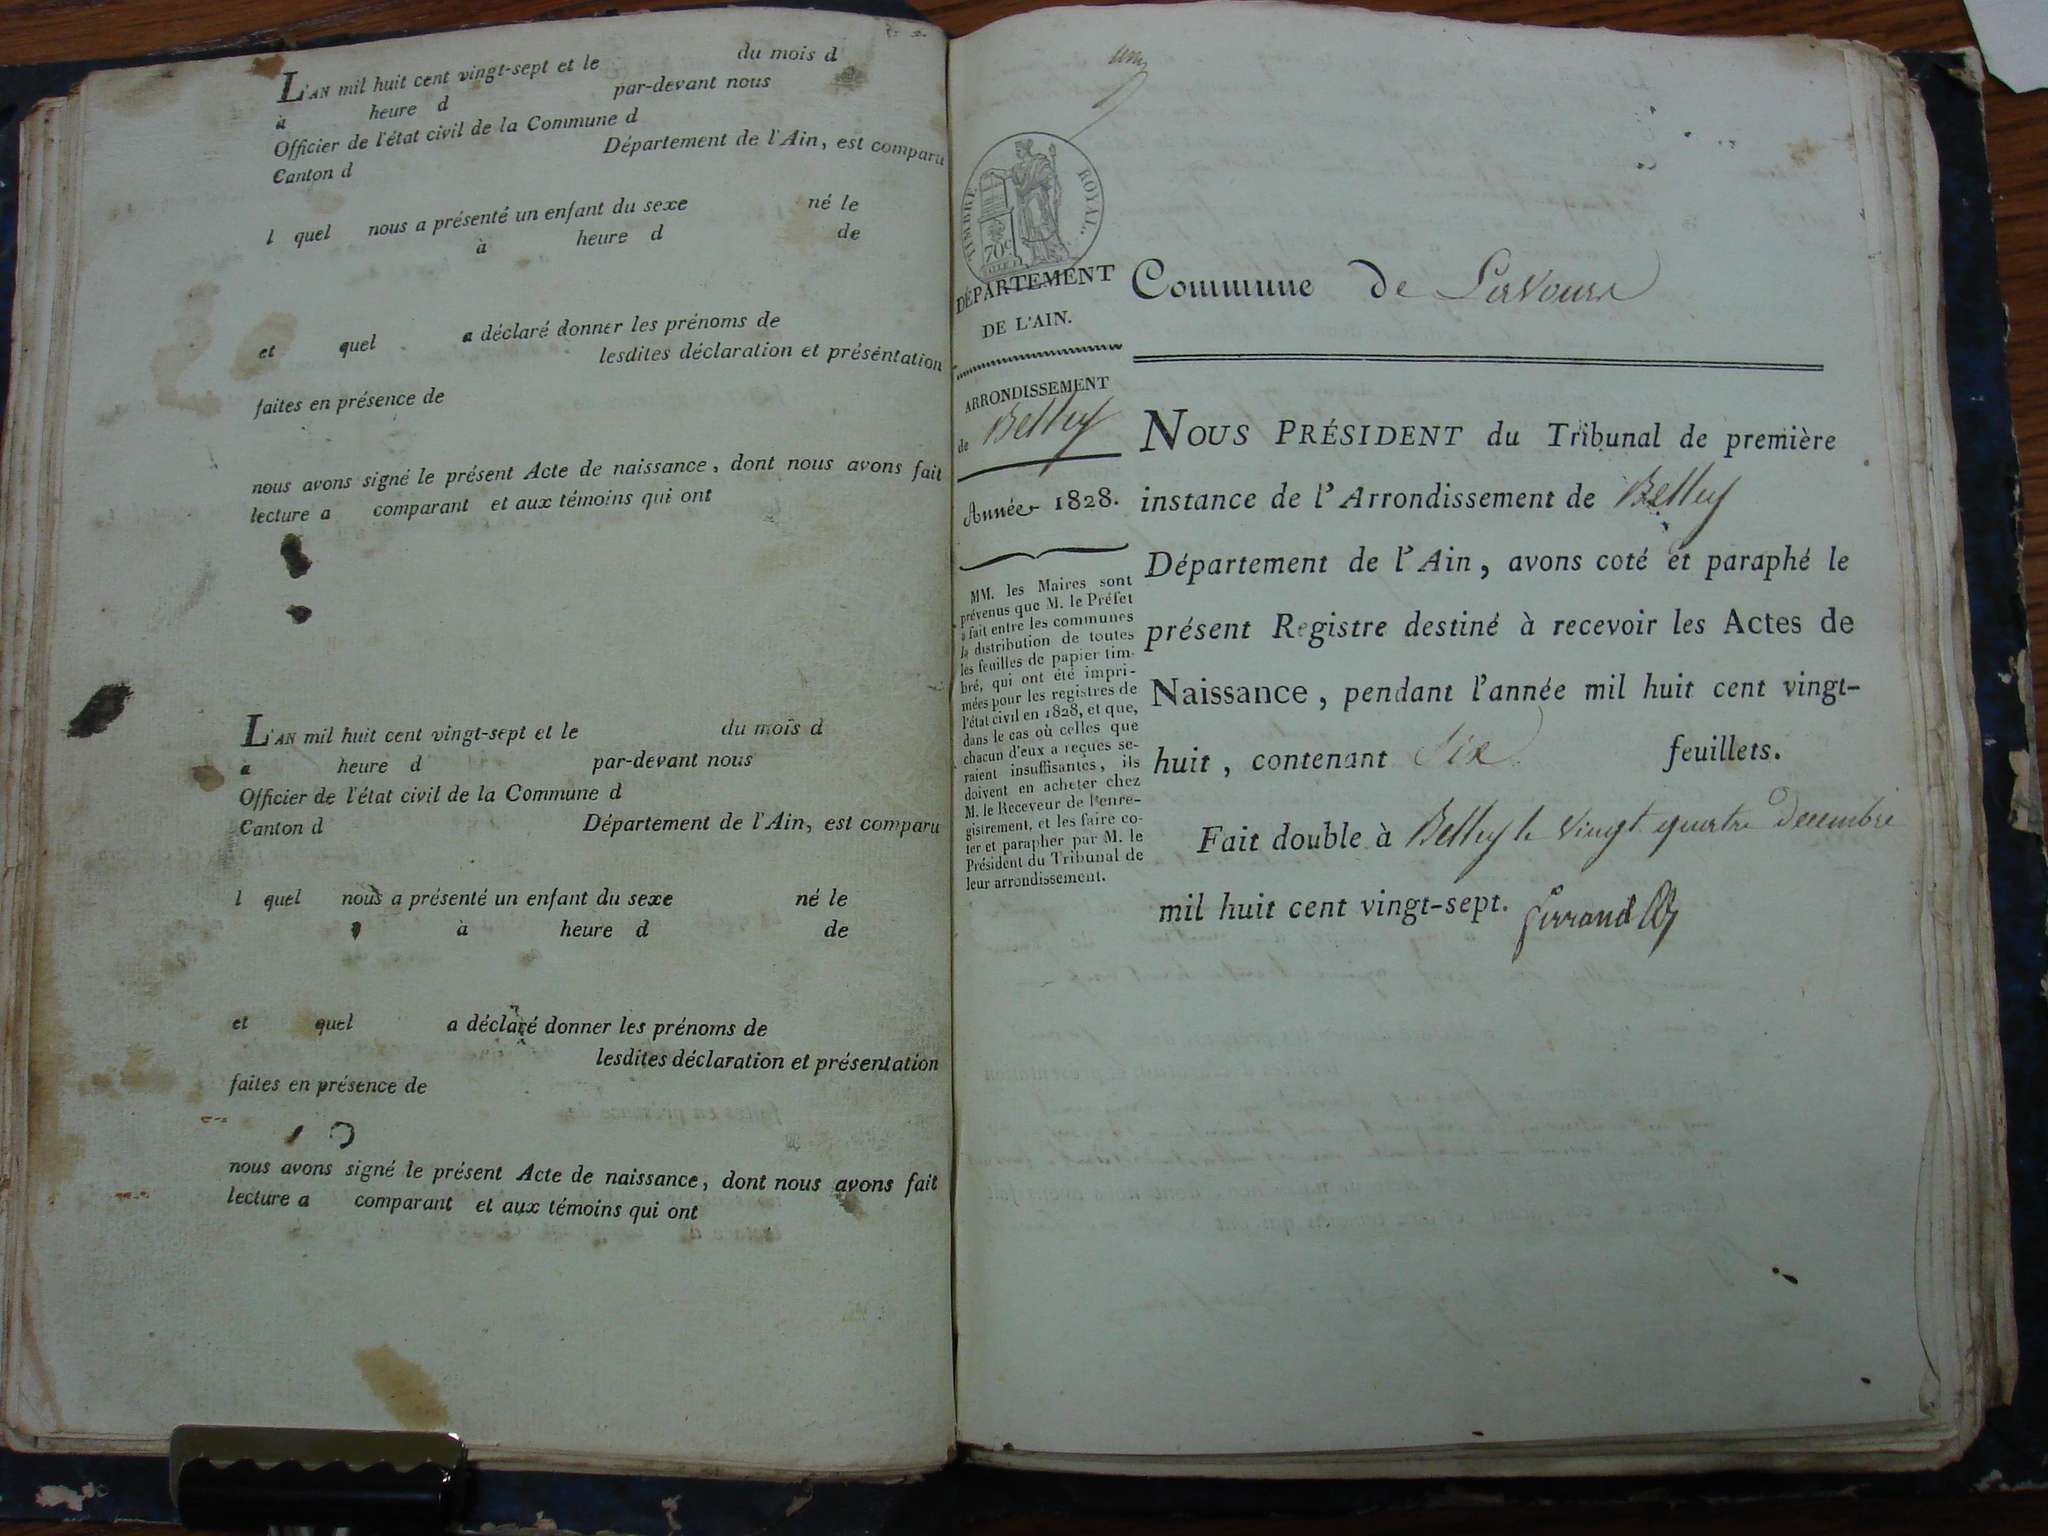 L'AN mil huit cent vingt-sept et le du mois d
à heure d par-devant nous
Officier de l'état civil de la Commune d
Canton d Département de l'Ain, est comparu
l quel nous a présenté un enfant du sexe né le
à heure d de
et quel a déclaré donner les prénoms de
lesdites déclaration et présentation
faites en présence de
nous avons signé le présent Acte de naissance, dont nous avons fait
lecture a comparant et aux témoins qui ont
L'AN mil huit cent vingt-sept et le du mois d
a heure d par-devant nous
Officier de l'état civil de la Commune d
Canton d Département de l'Ain, est comparu
l quel nous a présenté un enfant du sexe né le
à heure d de
et quel a déclaré donner les prénoms de
lesdites déclaration et présentation
faites en présence de
nous avons signé le présent Acte de naissance, dont nous avons fait
lecture a comparant et aux témoins qui ont
TIMBRE ROYAL.
70c
DÉPARTEMENT
DE L'AIN.
ARRONDISSEMENT
de Belley
Année 1828.
MM. les Maires sont
prévenus que M. le Préfet
a fait entre les communes
la distribution de toutes
les feuilles de papier tim-
bré, qui ont été impri-
mées pour les registres de
l'état civil en 1828, et que,
dans le cas où celles que
chacun d'eux a reçues se-
raient insuffisantes, ils
doivent en acheter chez
M. le Receveur de l'enre-
gistrement, et les faire co-
ter et parapher par M. le
Président du Tribunal de
leur arrondissement.
Commune de Lavours
NOUS PRÉSIDENT du Tribunal de première
instance de l'Arrondissement de Belley
Département de l'Ain, avons coté et paraphé le
présent Registre destiné à recevoir les Actes de
Naissance, pendant l'année mil huit cent vingt-
huit, contenant Six feuillets.
Fait double à Belley le vingt quatre Decembre
mil huit cent vingt-sept.